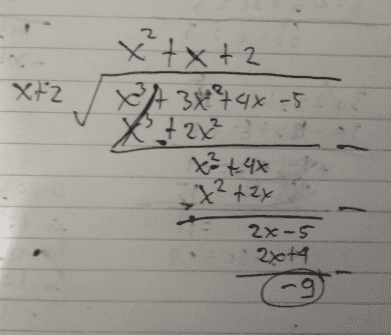 x² + x + 2
x+2 √ x³ + 3x² + 4x - 5
x³ + 2x²
-
x² + 4x
x² + 2x
-
2x - 5
2x + 4
-
-9